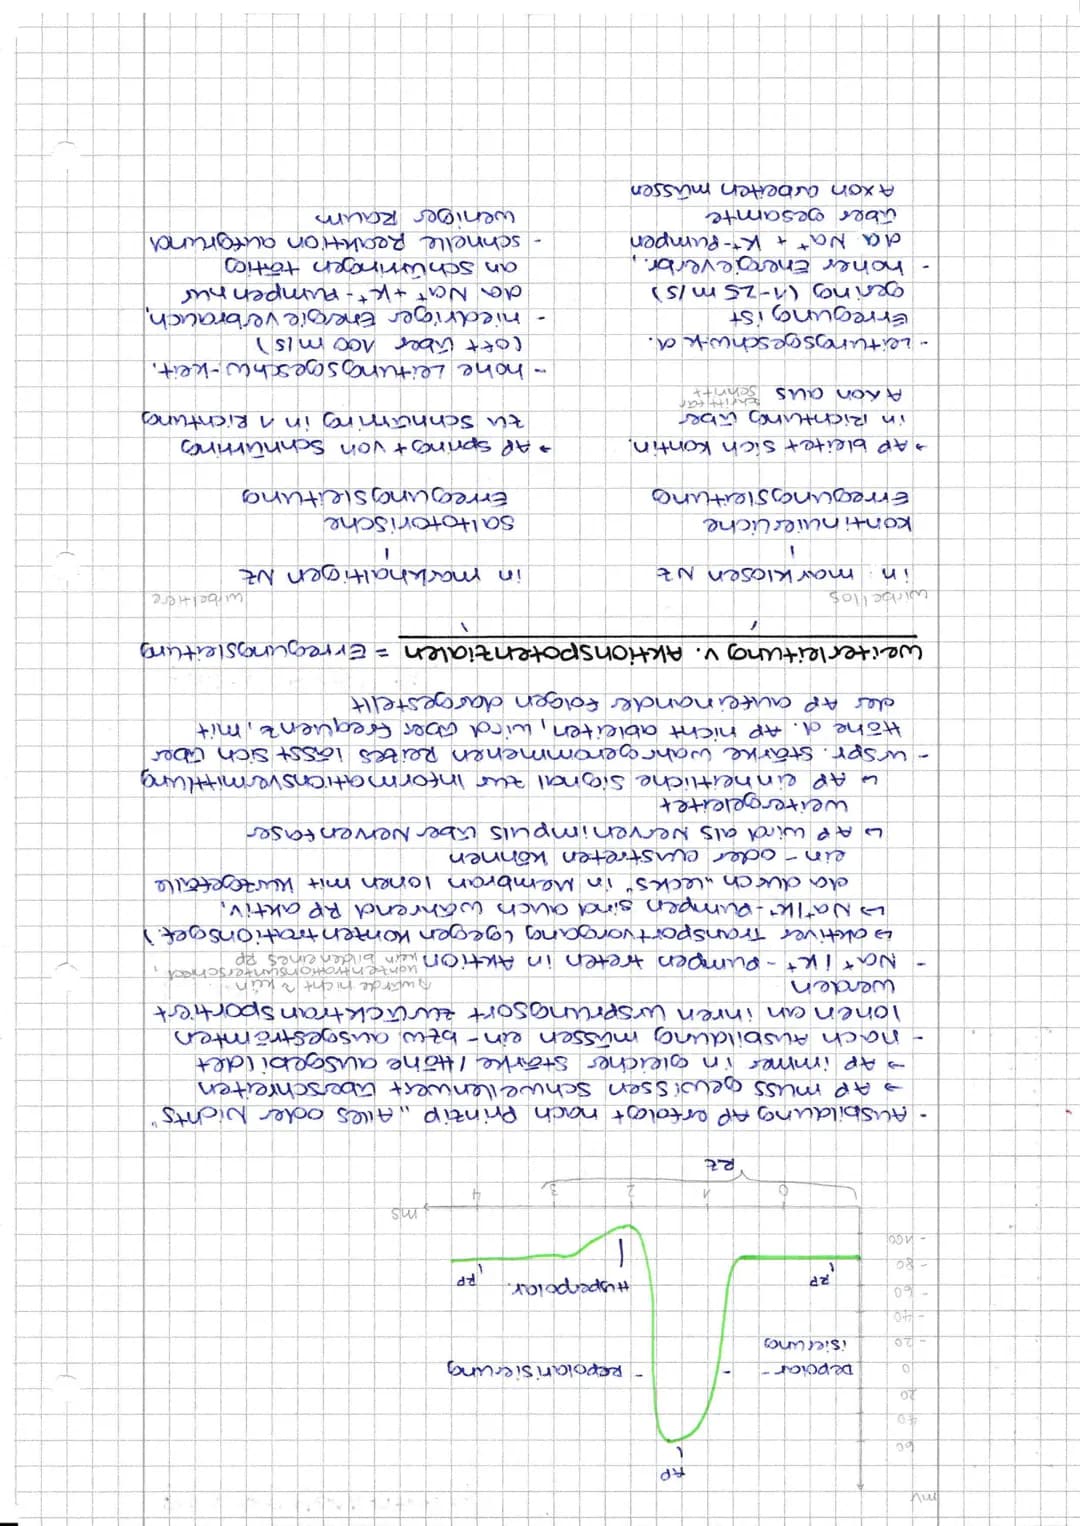 mV
AP
60
40
20
0
- 20
- 40
- 60
- 80
- 100
Depolar-
isierung
- Repolarisierung
RP
Hyperpolar.
RP
ms
0 1 2 3 4
RZ
- Ausbildung AP erfolgt nach Prinzip „Alles oder Nichts"
→ AP muss gewissen Schwellenwert überschreiten
→ AP immer in gleicher Stärke / Höhe ausgebildet
- nach Ausbildung müssen ein- bzw. ausgeströmten
Ionen an ihren Ursprungsort zurücktransportiert
werden
würde nicht → kein
Konzentrationsunterschied,
kein bilden eines RP
- Na⁺/K⁺-Pumpen treten in Aktion
↳ aktiver Transportvorgang (gegen Konzentrationsgef.)
↳ Na⁺/K⁺-Pumpen sind auch während RP aktiv,
da durch „Lecks" in Membran Ionen mit
ein- oder austreten können
↳ AP wird als Nervenimpuls über Nervenfaser
weitergeleitet
↳ AP einheitliche Signal zur Informationsvermittlung
- urspr. Stärke wahrgenommenen Reizes lässt sich über
Höhe d. AP nicht ableiten, wird über Frequenz, mit
der AP aufeinander folgen dargestellt
Weiterleitung v. Aktionspotenzialen = Erregungsleitung
wirbellos
in marklosen NZ
kontinuierliche
Erregungsleitung
→ AP bleitet sich kontin.
in Richtung über
Axon aus Schritt für
Schritt
- Leitungsgeschw.k. d.
Erregung ist
gering (1-25 m/s)
- hoher Energieverbr.,
da Na⁺ + K⁺-Pumpen
über gesamte
Axon arbeiten müssen
wirbeltiere
in markhaltigen NZ
saltatorische
Erregungsleitung
→ AP springt von Schnürring
zu Schnürring in 1 Richtung
- hohe Leitungsgeschw.-keit,
(oft über 100 m/s)
- niedriger Energieverbrauch,
da Na⁺ + K⁺-Pumpen nur
an Schnürringen tätig
- schnelle Reaktion aufgrund
weniger Raum